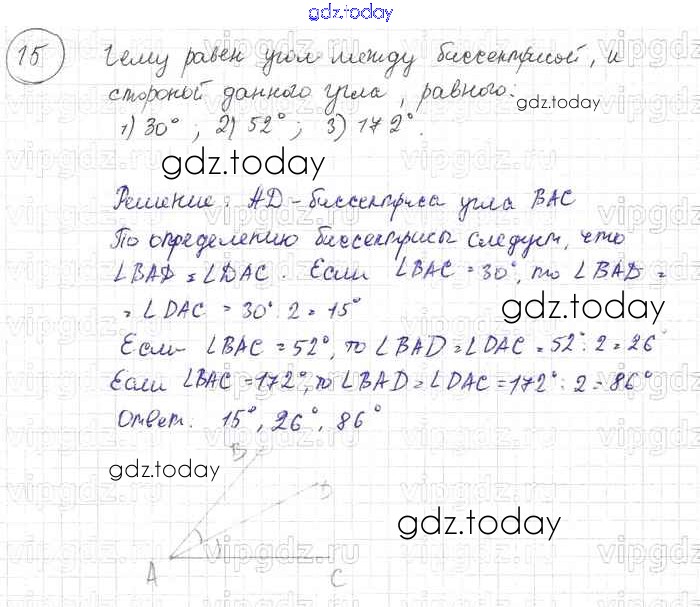 gdz.today
15 Чему равен угол между биссектрисой, и
стороной данного угла, равного:
gdz.today
1) 30° ; 2) 52° ; 3) 172°.
gdz.today
Решение: AD - биссектриса угла BAC
По определению биссектрисы следует, что
∠BAD = ∠DAC. Если ∠BAC = 30°, то ∠BAD =
= ∠DAC = 30° : 2 = 15°
gdz.today
Если ∠BAC = 52°, то ∠BAD = ∠DAC = 52° : 2 = 26°
Если ∠BAC = 172°, то ∠BAD = ∠DAC = 172° : 2 = 86°
Ответ. 15°, 26°, 86°
B
gdz.today
D
gdz.today
A C